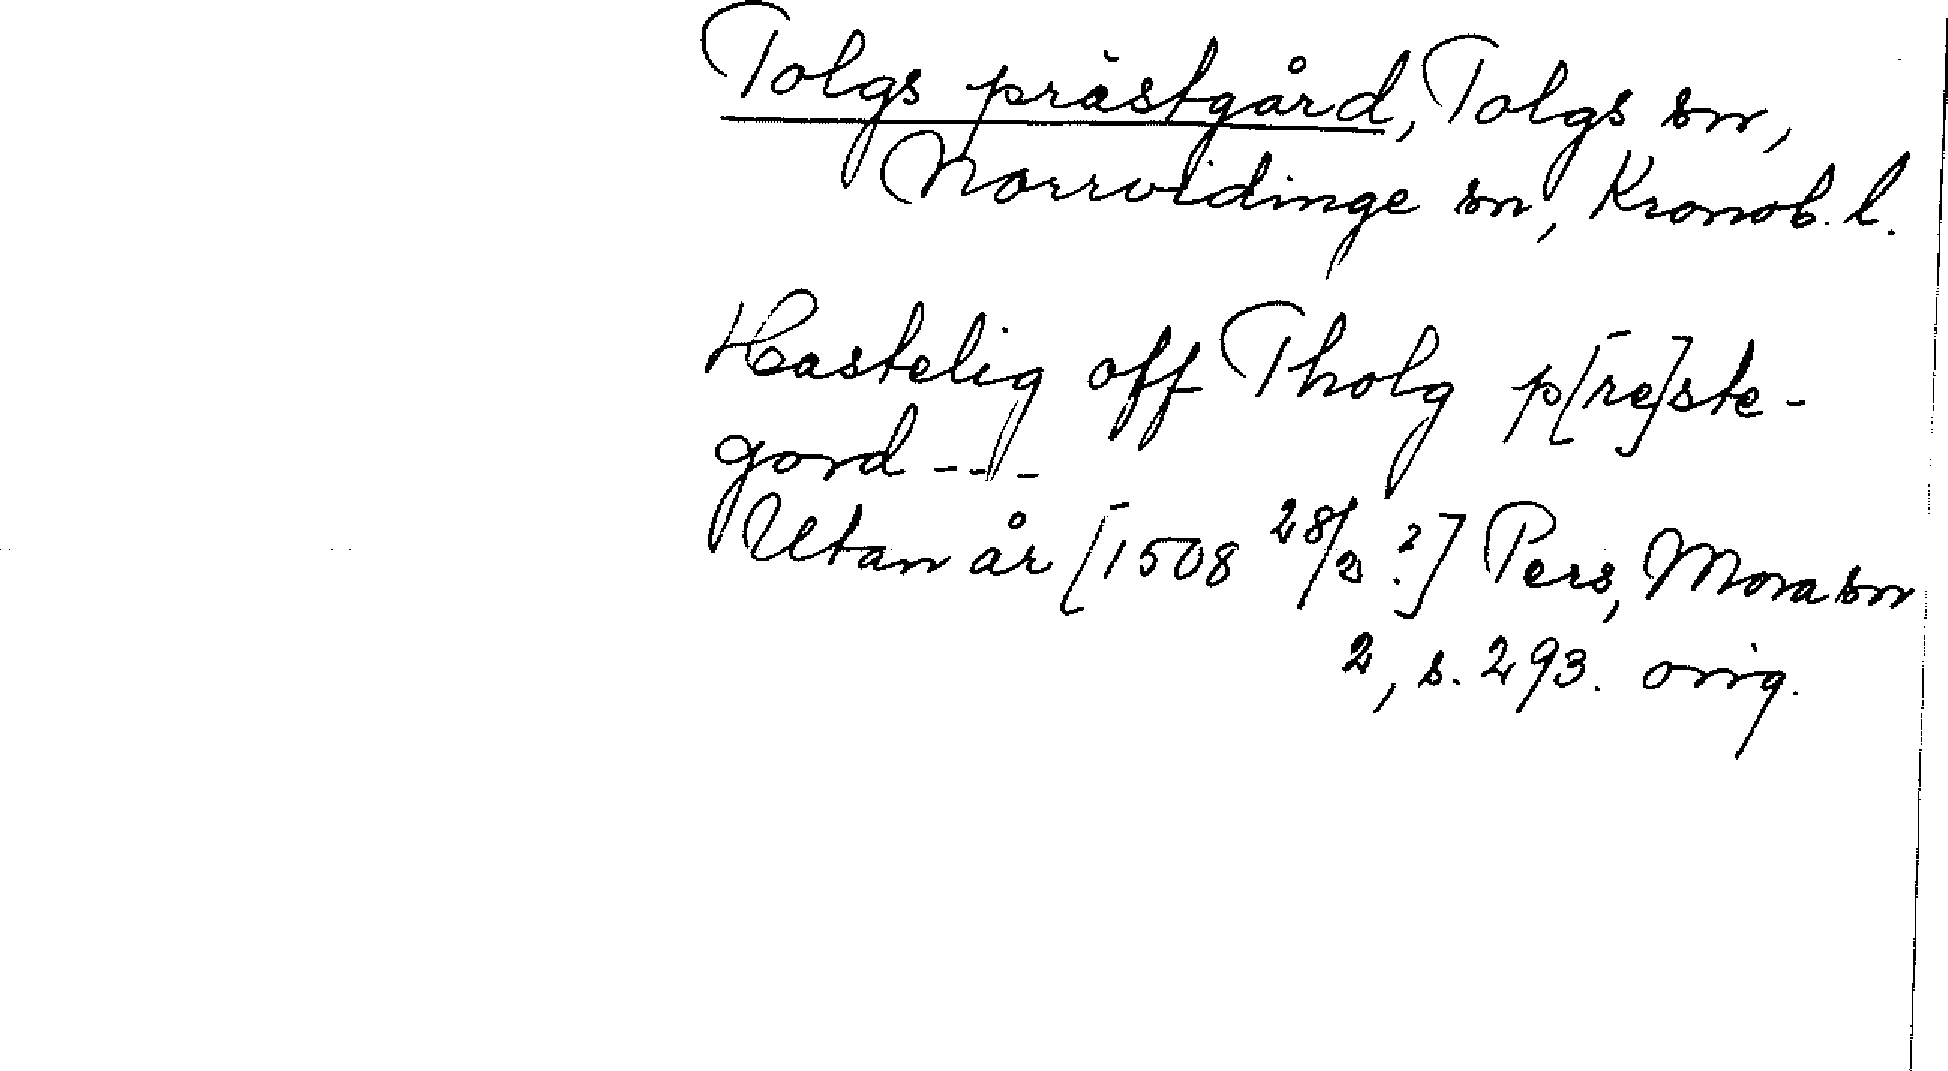 Tolgs prästgård, Tolgs sn,
Norrvidinge sn, Kronob. l.
Hastelig off Tholg p[re]ste-
gord ---
Utan år [1508 28/2 ?] Pers, Mora sn
2, s. 293. orig.